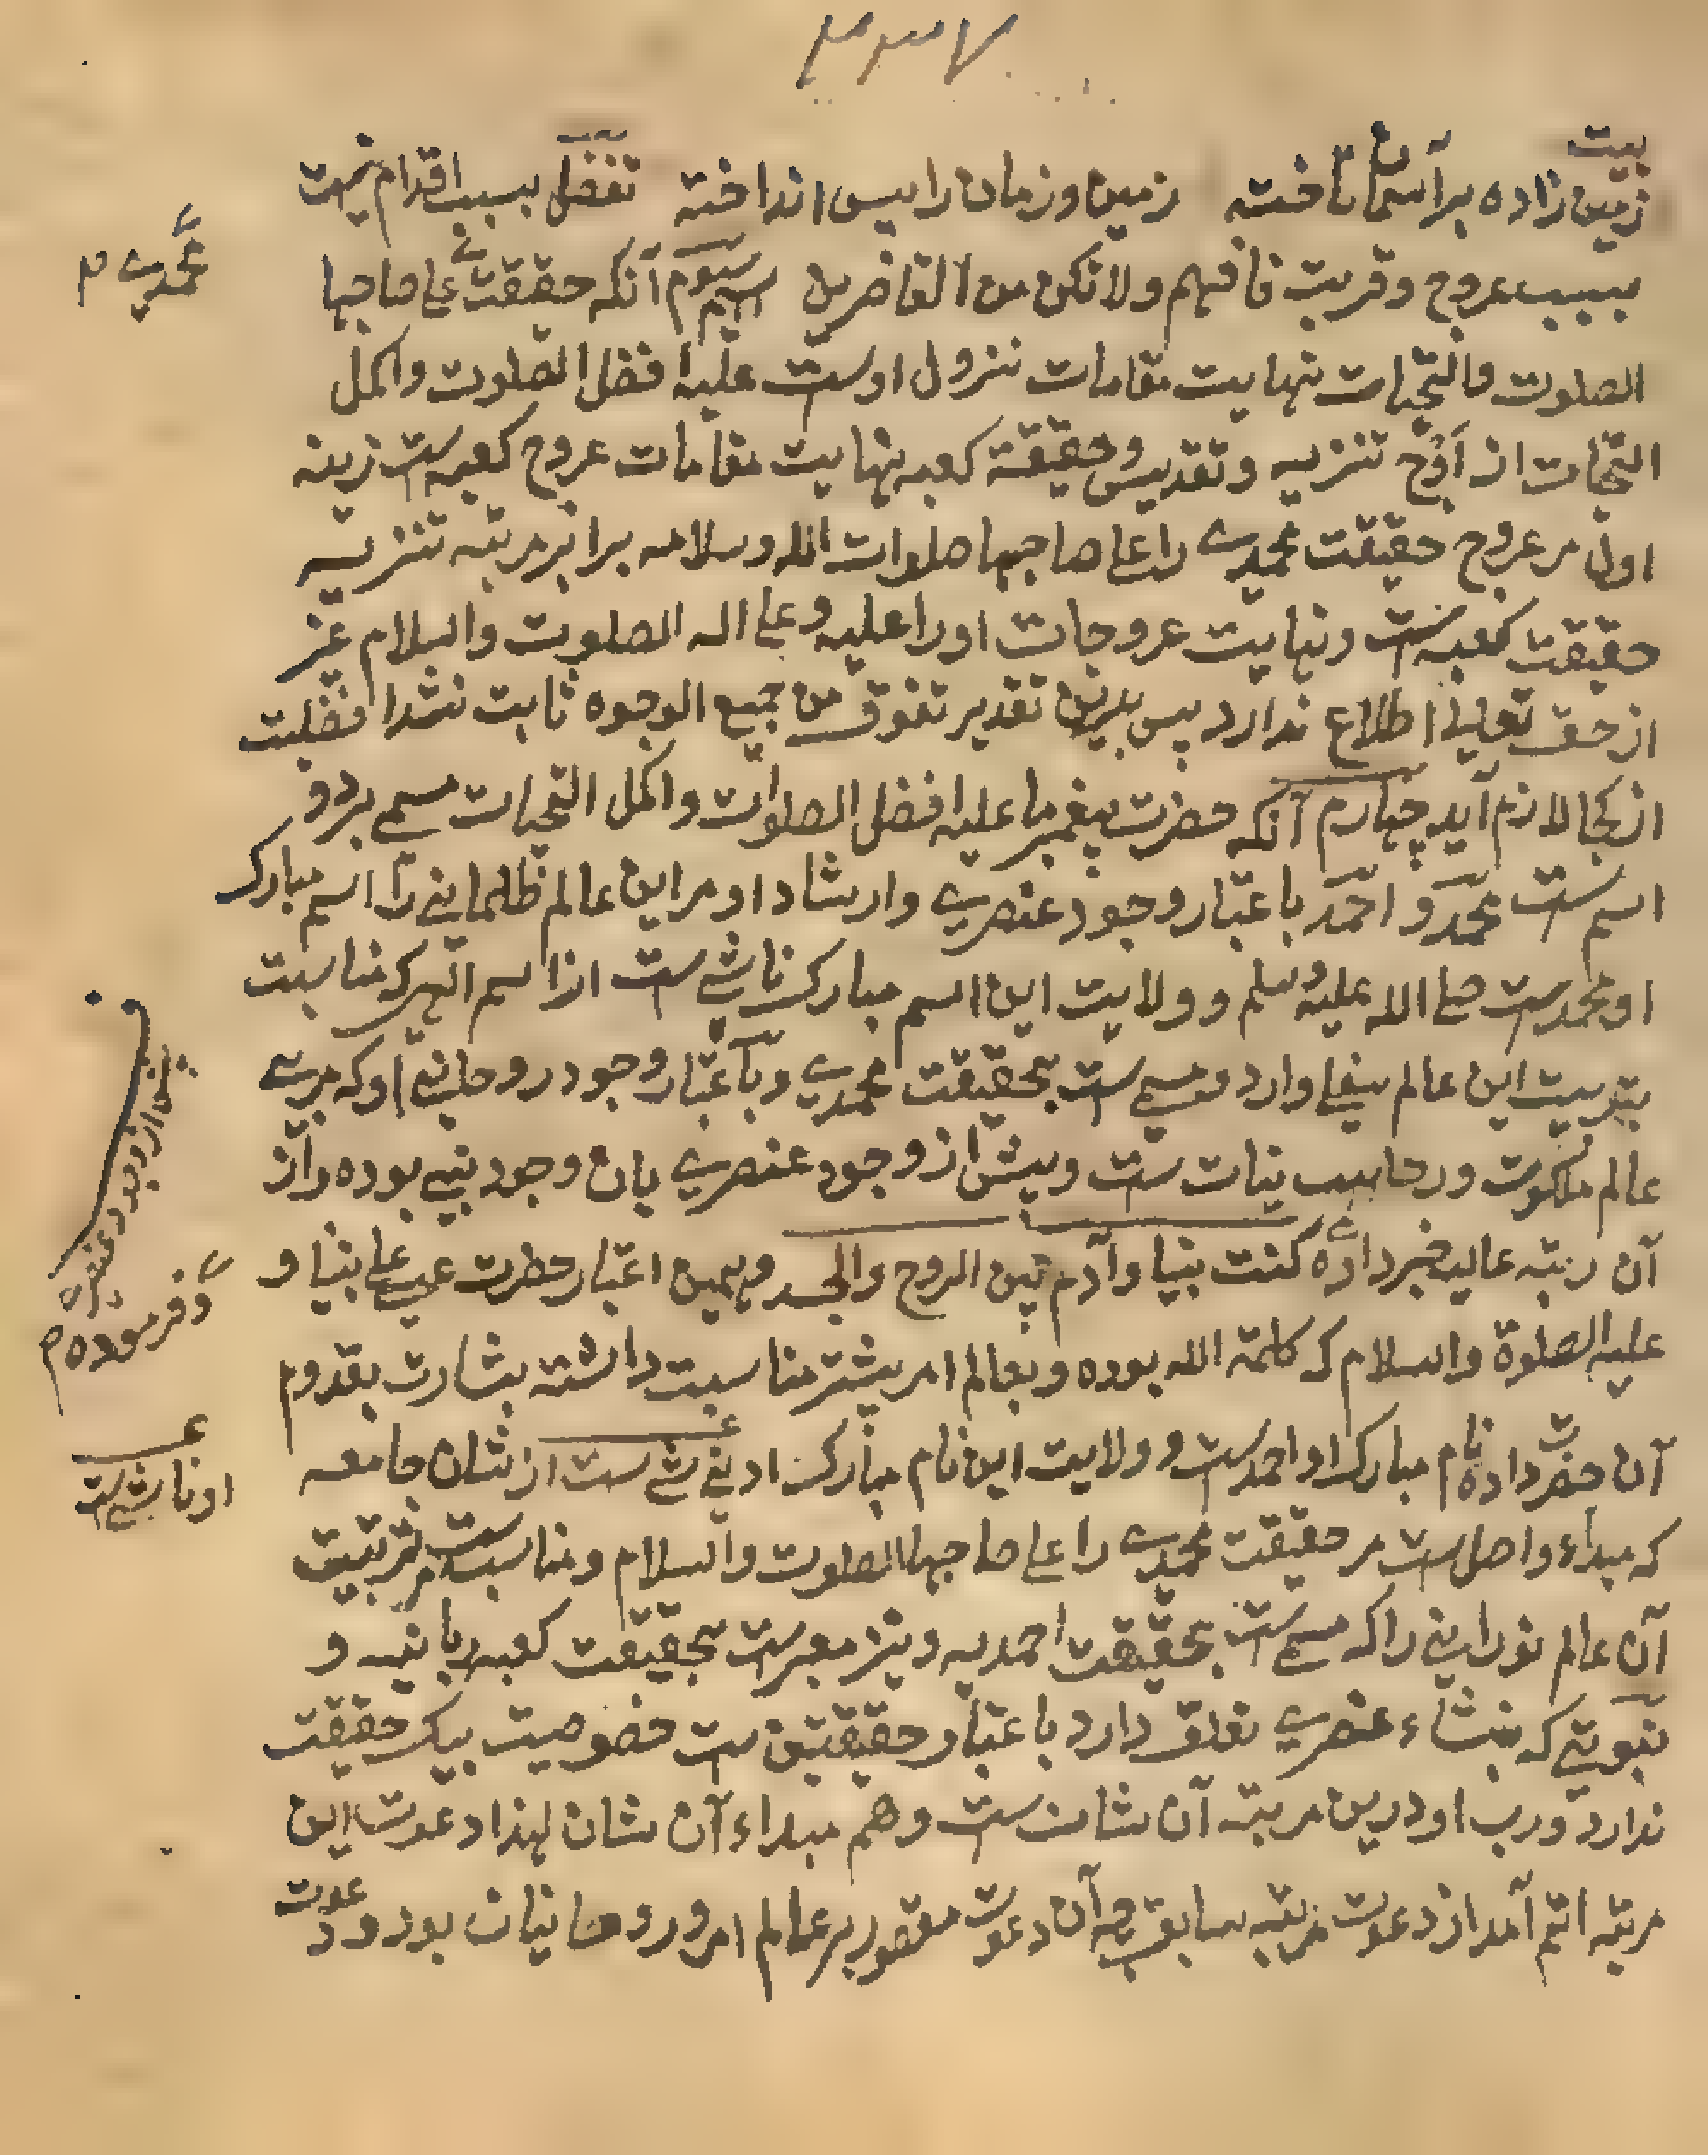 بیت
زمین زاده بر آسمان تاخته زمین و زمان را پس انداخته تفضل بسبب اقدام نیست
بسبب عروج و قربت فافهم ولا تکن من القاصرین سیوم آنکه حقیقت علی صاحبها
محمدی
الصلوت والتحیات نهایت مقامات نزول اوست علیه افضل الصلوت واکمل
التحیات از اوج تنزیه و تقدیس و حقیقة کعبه نهایت مقامات عروج کعبه ست زینه
اول مر عروج حقیقت محمدی را علی صاحبها صلوات الله وسلامه برابر مرتبه تنزیه
حقیقت کعبه ست و نهایت عروجات او را علیه و علی اله الصلوت والسلام غیر
از حق تعالی اطلاع ندارد پس بدین تقدیر تفوق من جمیع الوجوه ثابت نشد افضلیت
از کجا لازم آید چهارم آنکه حضرت پیغمبر ما علیه افضل الصلوات واکمل التحیات مسمی بردو
اسم ست محمد و احمد باعتبار وجود عنصری و ارشاد او مر این عالم ظلمانی را اسم مبارک
او محمدست صلی الله علیه وسلم و ولایت این اسم مبارک ناشی ست از اسم الهی که مناسبت
بتربیت این عالم سفلی دارد و مسمی ست بحقیقت محمدی و باعتبار وجود روحانی او که مربی
عالم ملکوت و روحانیات ست و پیش از وجود عنصری بان وجود نبی بوده و از
پیش از وجود عنصری
آن رتبه عالیه خبر داده کنت نبیا وآدم بین الروح والجسد و بهمین اعتبار حضرت عیسی علی نبینا و
و فرموده
علیه الصلوة والسلام که کلمة الله بوده و بعالم امر بیشتر مناسبت داشته بشارت بقدوم
آن حضرت داده نام مبارک او احمدست و ولایت این نام مبارک ناشی ست از شان جامعه
او ناشی ست
که مبداء و اصل ست مر حقیقت محمدی را علی صاحبها الصلوت والسلام و مناسب ست مر تربیت
آن عالم نورانی را که مسمی ست بحقیقت احمدیه و نیز معبرست بحقیقت کعبه ربانیه و
نبوتی که بنشاء عنصری تعلق دارد باعتبار حقیقتین ست خصوصیت بیک حقیقت
ندارد و رب او درین مرتبه آن شان ست و هم مبداء آن شان لهذا دعوت این
مرتبه اتم آمد از دعوت مرتبه سابق چه آن دعوت مقصور بر عالم امر و روحانیان بود و دعوت